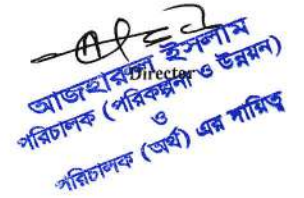 Director
আজহারুল ইসলাম
পরিচালক (পরিকল্পনা ও উন্নয়ন)
ও
পরিচালক (অর্থ) এর দায়িত্ব